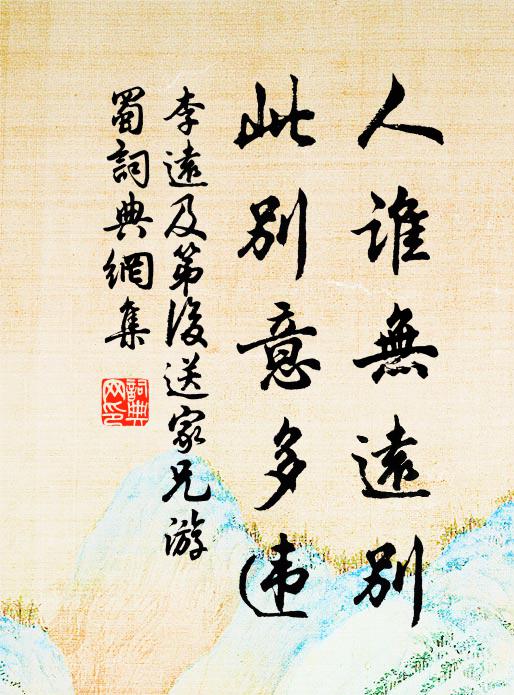 人誰無遠別
此別意多违
李遠及第後送家兄游
蜀詞典網集
詞典
网印